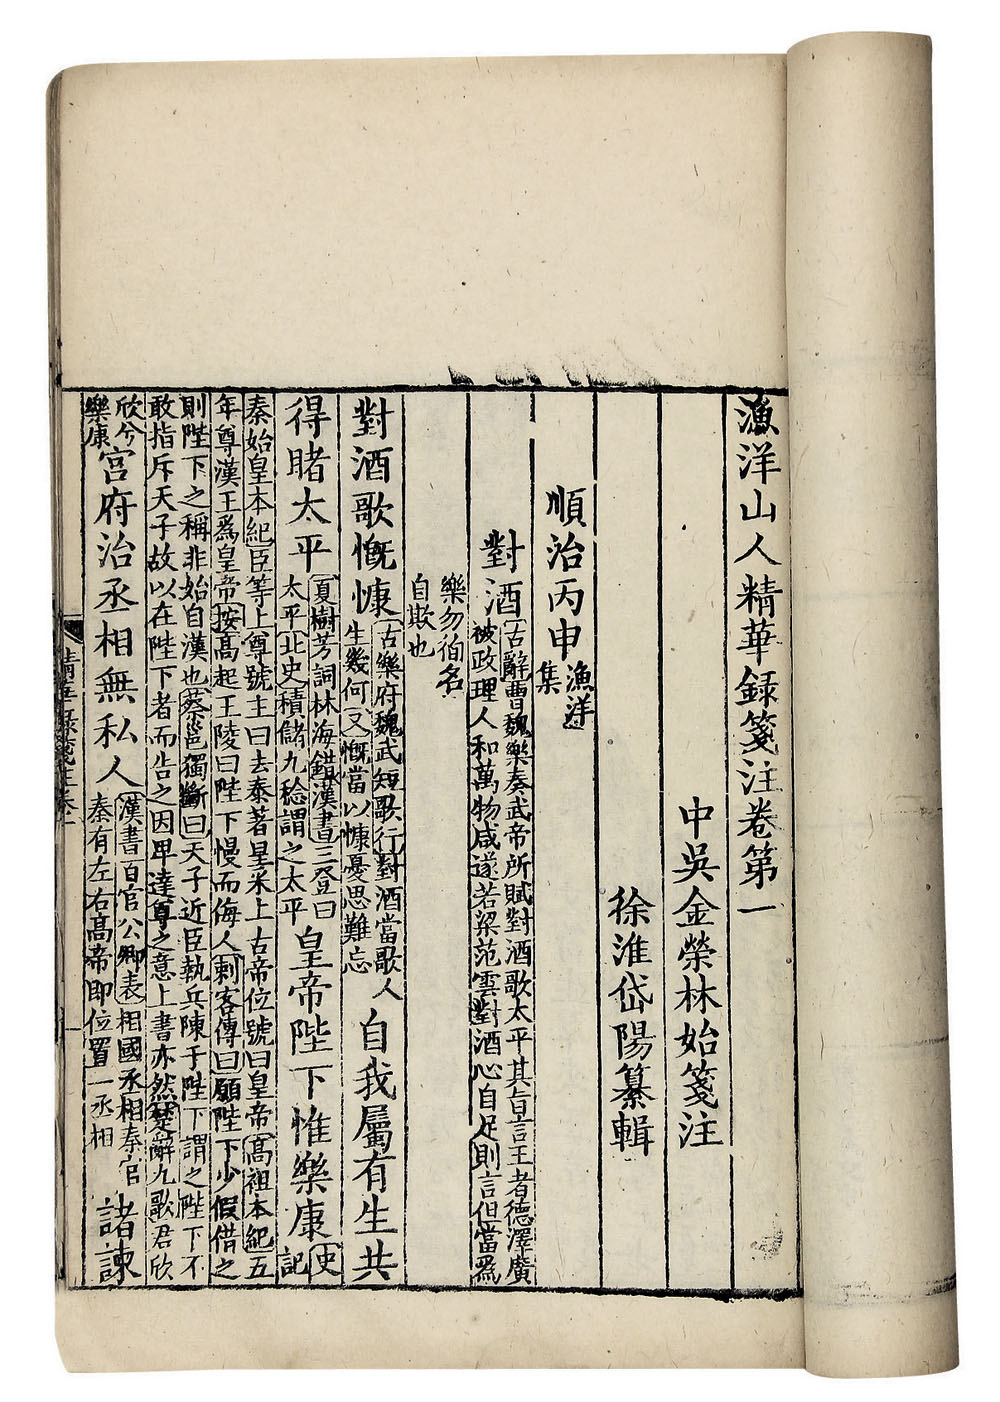 漁洋山人精華録箋注卷第一
中吳金榮林始箋注
徐淮岱陽纂輯
順治丙申
漁洋
集
對酒
古辭曹魏樂奏武帝所賦對酒歌太平其旨言王者德澤廣
被政理人和萬物咸遂若梁范雲對酒心自足則言但當爲
樂勿徇名
自欺也
對酒歌慨慷
古樂府魏武短歌行對酒當歌人
生幾何又慨當以慷憂思難忘
自我屬有生共
得睹太平
夏樹芳詞林海錯漢書三登曰
太平北史積儲九稔謂之太平
皇帝陛下惟樂康
史
記
秦始皇本紀臣等上尊號主曰去泰著皇采上古帝位號曰皇帝高祖本紀五
年尊漢王爲皇帝按高起王陵曰陛下慢而侮人刺客傳曰願陛下少假借之
則陛下之稱非始自漢也蔡邕獨斷曰天子近臣執兵陳于陛下謂之陛下不
敢指斥天子故以在陛下者而告之因卑達尊之意上書亦然楚辭九歌君欣
欣兮
樂康
宮府治丞相無私人
漢書百官公卿表相國丞相秦官
秦有左右高帝即位置一丞相
諸諫